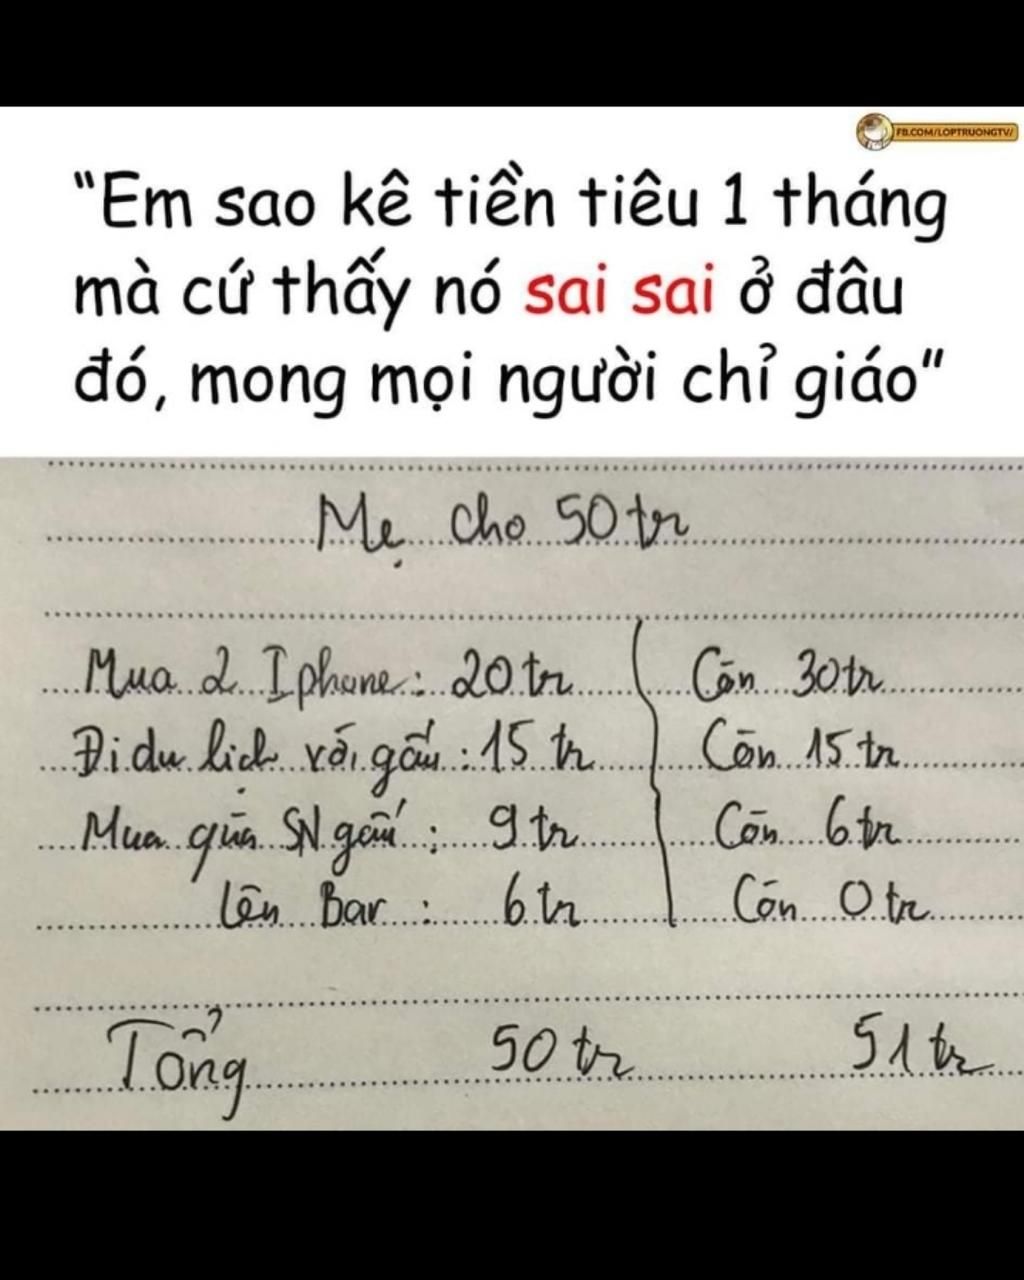 FB.COM/LOPTRUONGTV/
"Em sao kê tiền tiêu 1 tháng
mà cứ thấy nó sai sai ở đâu
đó, mong mọi người chỉ giáo"
Mẹ cho 50 tr
Mua 2 Iphone: 20 tr Còn 30 tr
Đi du lịch với gấu: 15 tr Còn 15 tr
Mua quà SN gấu: 9 tr Còn 6 tr
lên Bar: 6 tr Còn 0 tr
Tổng 50 tr 51 tr